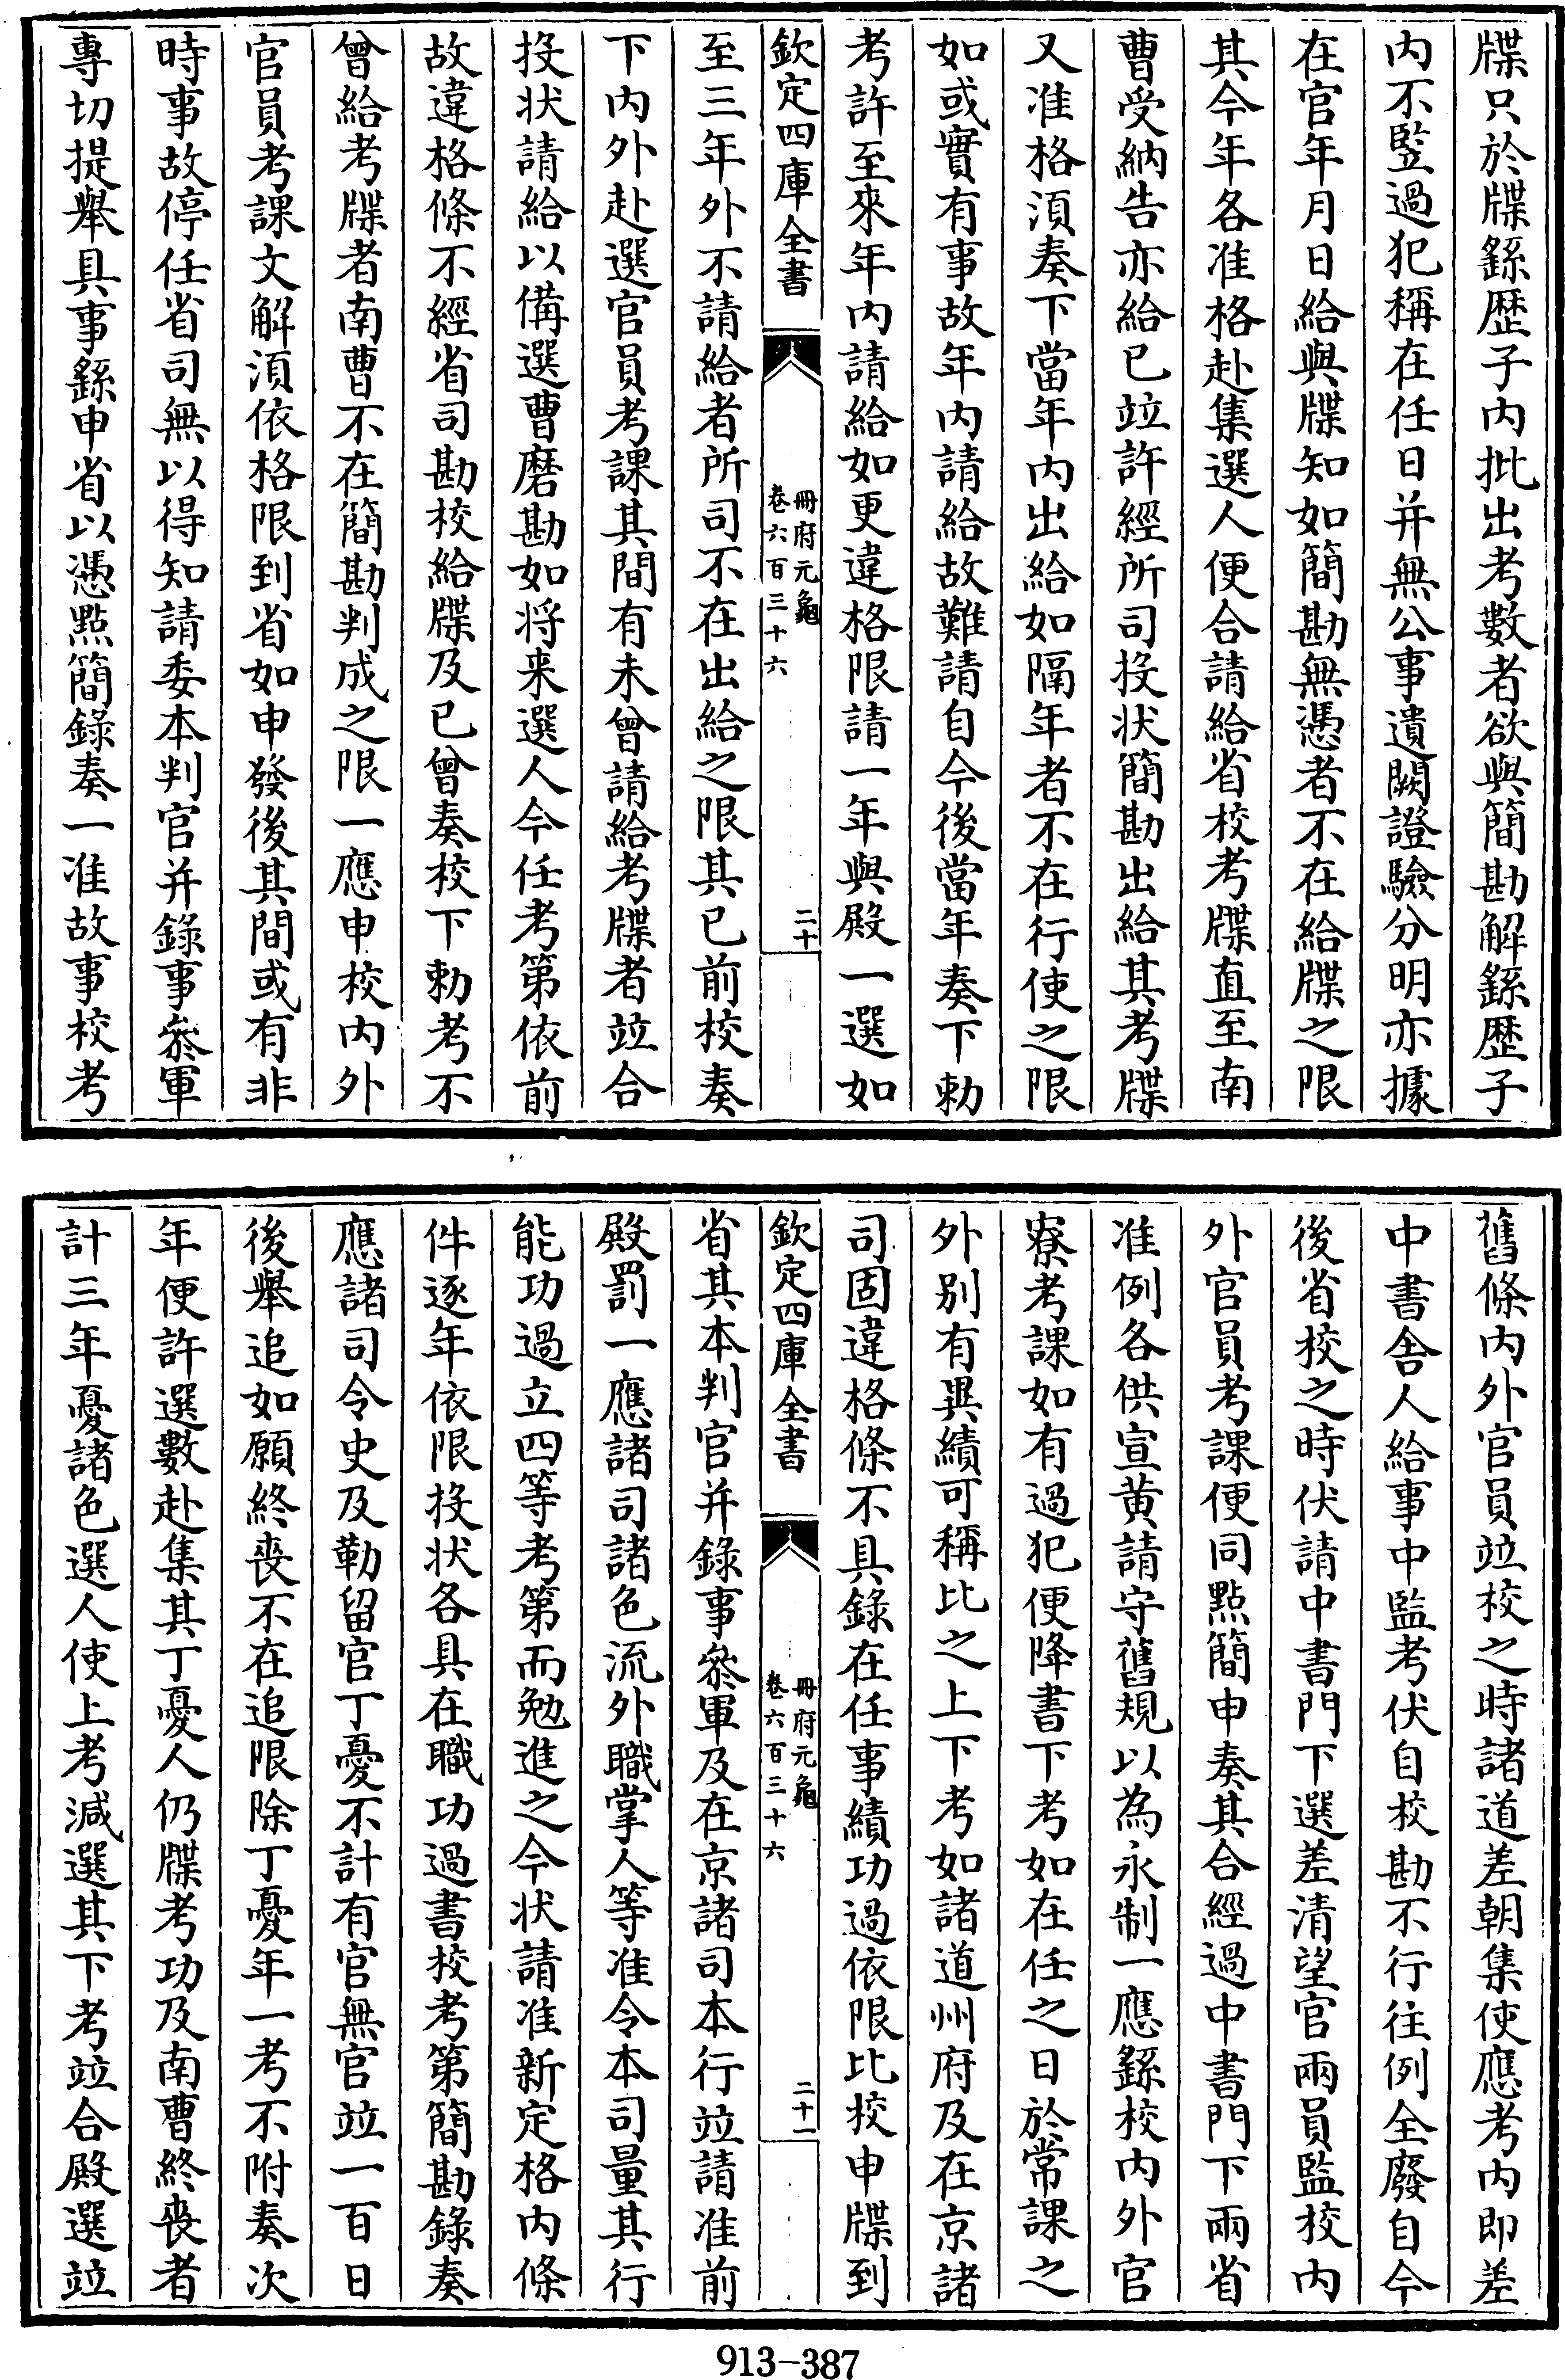 牒只於牒繇歴子内批出考數者欲與簡勘解繇歴子
内不豎過犯稱在任日并無公事遺闕證驗分明亦據
在官年月日給與牒知如簡勘無憑者不在給牒之限
其今年各准格赴集選人便合請給省校考牒直至南
曹受納告亦給已竝許經所司投状簡勘出給其考牒
又准格須奏下當年内出給如隔年者不在行使之限
如或實有事故年内請給故難請自今後當年奏下勅
考許至來年内請給如更違格限請一年與殿一選如
欽定四庫全書
冊府元龜
卷六百三十六
二十
至三年外不請給者所司不在出給之限其已前校奏
下内外赴選官員考課其間有未曾請給考牒者竝合
投状請給以備選曹磨勘如将来選人今任考第依前
故違格條不經省司勘校給牒及已曾奏校下勅考不
曾給考牒者南曹不在簡勘判成之限一應申校内外
官員考課文解須依格限到省如申發後其間或有非
時事故停任省司無以得知請委本判官并錄事叅軍
專切提舉具事繇申省以憑點簡錄奏一准故事校考
舊條内外官員竝校之時諸道差朝集使應考内即差
中書舎人給事中監考伏自校勘不行往例全廢自今
後省校之時伏請中書門下選差清望官兩員監校内
外官員考課便同點簡申奏其合經過中書門下兩省
准例各供宣黄請守舊規以為永制一應繇校内外官
寮考課如有過犯便降書下考如在任之日於常課之
外别有異績可稱比之上下考如諸道州府及在京諸
司固違格條不具錄在任事績功過依限比校申牒到
欽定四庫全書
冊府元龜
卷六百三十六
二十一
省其本判官并錄事叅軍及在京諸司本行竝請准前
殿罰一應諸司諸色流外職掌人等准令本司量其行
能功過立四等考第而勉進之今状請准新定格内條
件逐年依限投状各具在職功過書校考第簡勘錄奏
應諸司令史及勒留官丁憂不計有官無官竝一百日
後舉追如願終喪不在追限除丁憂年一考不附奏次
年便許選數赴集其丁憂人仍牒考功及南曹終喪者
計三年憂諸色選人使上考減選其下考竝合殿選竝
913-387